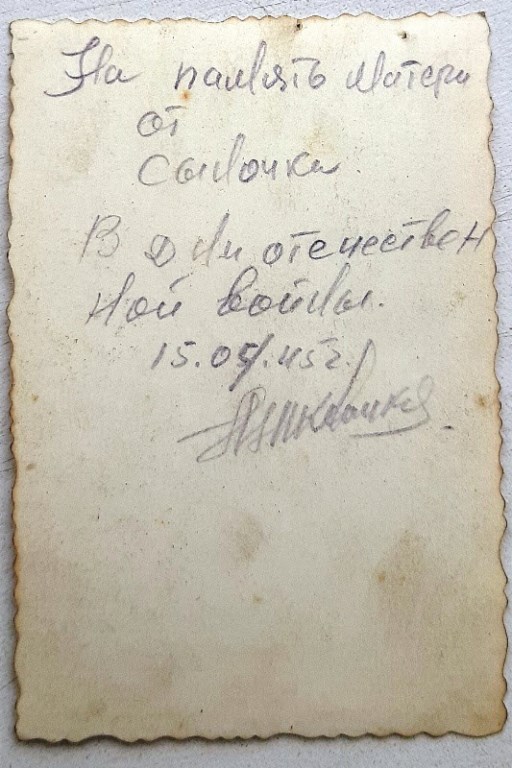 На память матери
от
сыночка
В дни отечествен
ной войны.
15.05.45г.